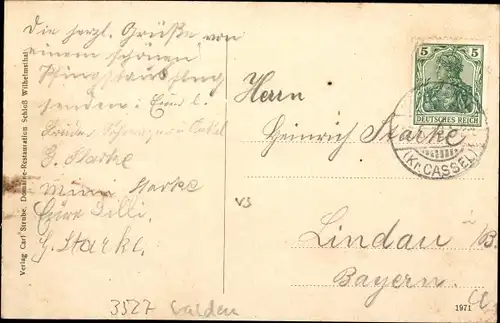 Die herzl. Grüße von
einem schönen
Pfingstausflug
senden: Eure l.
Brüder Schwager u. Onkel
G. Starke
Minni Starke
Eure Lilli.
G. Starke.
Verlag Carl Strube, Domäne-Restauration Schloß Wilhelmsthal
5 5
DEUTSCHES REICH
(Kr. CASSEL)
Herrn
Heinrich Starke
Lindau i/B.
Bayern.
1971
3527 Calden